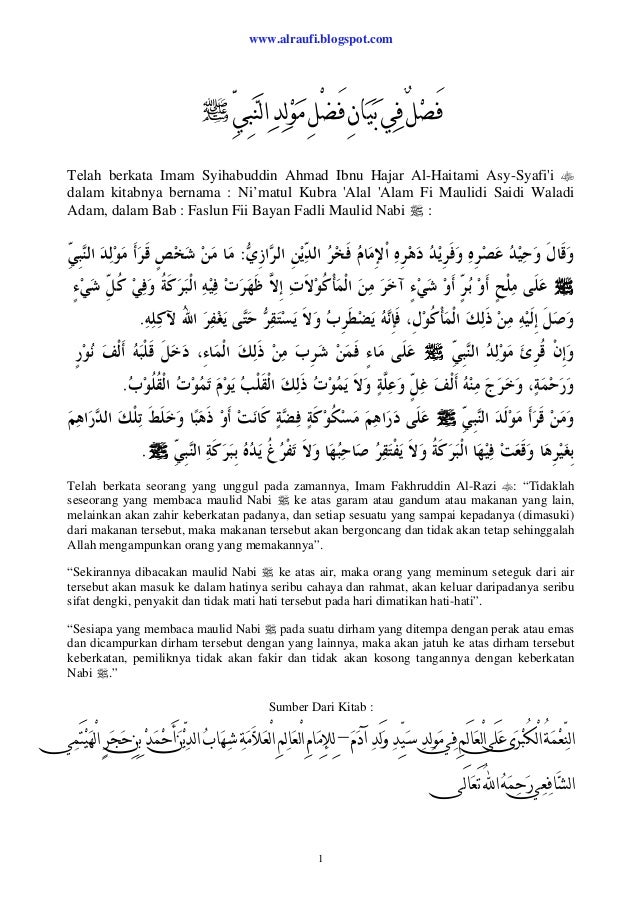 www.alraufi.blogspot.com
فَصْلٌ فِي بَيَانِ فَضْلِ مَوْلِدِ النَّبِيِّ ﷺ
Telah berkata Imam Syihabuddin Ahmad Ibnu Hajar Al-Haitami Asy-Syafi'i
dalam kitabnya bernama : Ni’matul Kubra 'Alal 'Alam Fi Maulidi Saidi Waladi
Adam, dalam Bab : Faslun Fii Bayan Fadli Maulid Nabi ﷺ :
وَقَالَ وَحِيْدُ عَصْرِهِ وَفَرِيْدُ دَهْرِهِ اْلإِمَامُ فَخْرُ الدِّيْنِ الرَّازِيُّ: مَا مِنْ شَخْصٍ قَرَأَ مَوْلِدَ النَّبِيِّ
ﷺ عَلَى مِلْحٍ أَوْ بُرٍّ أَوْ شَيْءٍ آخَرَ مِنَ الْمَأْكُوْلاَتِ إِلاَّ ظَهَرَتْ فِيْهِ الْبَرَكَةُ وَفِيْ كُلِّ شَيْءٍ
وَصَلَ إِلَيْهِ مِنْ ذَلِكَ الْمَأْكُوْلِ، فَإِنَّهُ يَضْطَرِبُ وَلاَ يَسْتَقِرُّ حَتَّى يَغْفِرَ اللهُ لآكِلِهِ.
وَإِنْ قُرِئَ مَوْلِدُ النَّبِيِّ ﷺ عَلَى مَاءٍ فَمَنْ شَرِبَ مِنْ ذَلِكَ الْمَاءِ، دَخَلَ قَلْبَهُ أَلْفَ نُوْرٍ
وَرَحْمَةٍ، وَخَرَجَ مِنْهُ أَلْفَ غِلٍّ وَعِلَّةٍ وَلاَ يَمُوْتُ ذَلِكَ الْقَلْبُ يَوْمَ تَمُوْتُ الْقُلُوْبُ.
وَمَنْ قَرَأَ مَوْلَدَ النَّبِيِّ ﷺ عَلَى دَرَاهِمَ مَسْكُوْكَةٍ فِضَّةٍ كَانَتْ أَوْ ذَهَبًا وَخَلَطَ تِلْكَ الدَّرَاهِمَ
بِغَيْرِهَا وَقَعَتْ فِيْهَا الْبَرَكَةُ وَلاَ يَفْتَقِرُ صَاحِبُهَا وَلاَ تَفْرُغُ يَدُهُ بِبَرَكَةِ النَّبِيِّ ﷺ.
Telah berkata seorang yang unggul pada zamannya, Imam Fakhruddin Al-Razi : “Tidaklah
seseorang yang membaca maulid Nabi ﷺ ke atas garam atau gandum atau makanan yang lain,
melainkan akan zahir keberkatan padanya, dan setiap sesuatu yang sampai kepadanya (dimasuki)
dari makanan tersebut, maka makanan tersebut akan bergoncang dan tidak akan tetap sehinggalah
Allah mengampunkan orang yang memakannya”.
“Sekirannya dibacakan maulid Nabi ﷺ ke atas air, maka orang yang meminum seteguk dari air
tersebut akan masuk ke dalam hatinya seribu cahaya dan rahmat, akan keluar daripadanya seribu
sifat dengki, penyakit dan tidak mati hati tersebut pada hari dimatikan hati-hati”.
“Sesiapa yang membaca maulid Nabi ﷺ pada suatu dirham yang ditempa dengan perak atau emas
dan dicampurkan dirham tersebut dengan yang lainnya, maka akan jatuh ke atas dirham tersebut
keberkatan, pemiliknya tidak akan fakir dan tidak akan kosong tangannya dengan keberkatan
Nabi ﷺ.”
Sumber Dari Kitab :
النِّعْمَةُ الْكُبْرَى عَلَى الْعَالَمِ فِي مَوْلِدِ سَيِّدِ وَلَدِ آدَمَ – لِلإِمَامِ الْعَالِمِ الْعَلاَّمَةِ شِهَابُ الدِّيْنِ أَحْمَدْ بِنْ حَجَرٍ الْهَيْتَمِي
الشَّافِعِي رَحِمَهُ اللهُ تَعَالَى
1